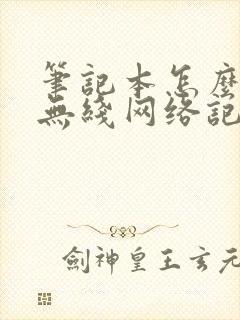 筆記本怎麼
無綫网络記
劍神皇王玄元